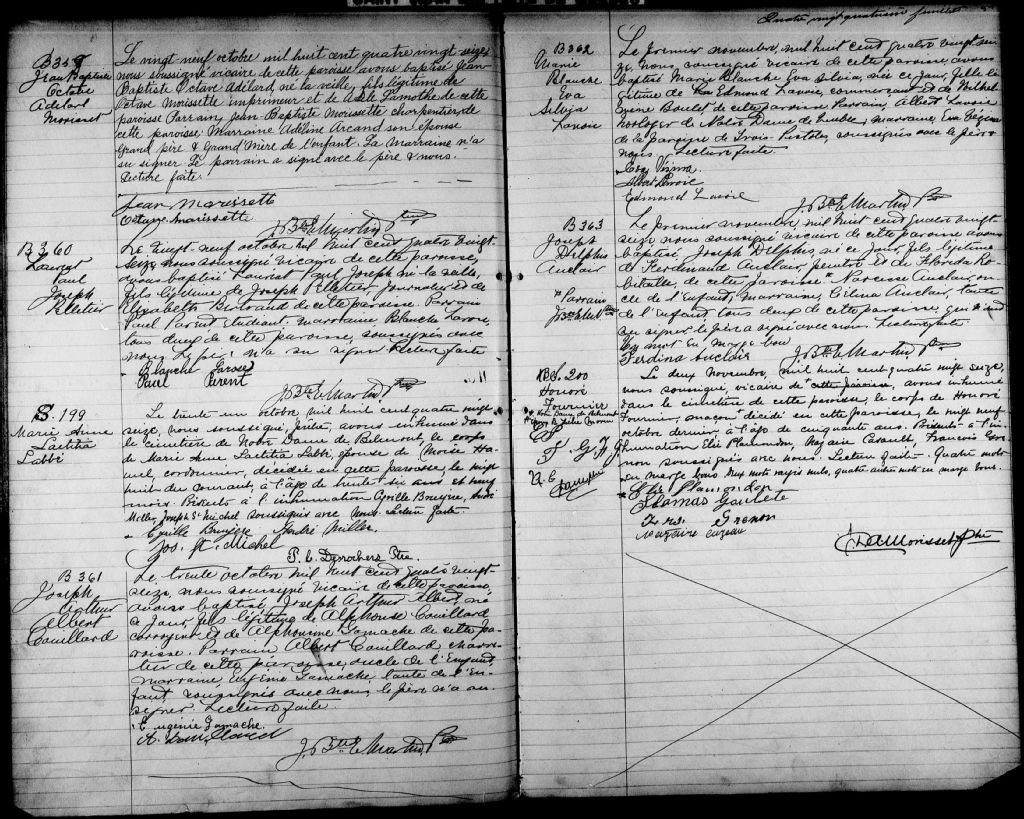 B 359
Jean Baptiste
Octave
Adélard
Morisset
Le vingt-neuf octobre mil huit cent quatre vingt-seize
nous soussigné vicaire de cette paroisse avons baptisé Jean-
Baptiste Octave Adélard, né la veille, fils légitime de
Octave Morissette imprimeur et de Adèle Lamothe de cette
paroisse Parrain, Jean-Baptiste Morissette charpentier, de
cette paroisse Marraine Adéline Arcand son épouse
Grand père & Grand Mère de l'enfant. La Marraine n'a
su signer Le parrain a signé avec le père & nous.
Lecture faite.
Jean Morissette
Octave Morissette
J. Bte E Martin Ptre
B 360
Lauréat
Paul
Joseph
Pelletier
Le vingt-neuf octobre mil huit cent quatre vingt-
seize, nous soussigné vicaire de cette paroisse,
avons baptisé Lauréat Paul Joseph né la veille,
fils légitime de Joseph Pelletier Journalier et de
Elizabeth Bertrand de cette paroisse Parrain
Paul Parent étudiant marraine Blanche
tous deux de cette paroisse, soussignés avec
nous Le père n'a su signer Lecture faite
Blanche
Paul Parent
J. Bte E Martin Ptre
S. 199
Marie Anne
Laetitia
Labbé
Le trente-un octobre, mil huit cent quatre vingt
seize, nous soussigné, prêtre, avons inhumé dans
le cimetière de Notre Dame de Belmont, le corps
de Marie Anne Laetitia Labbé, épouse de Moïse
cordonnier, décédée en cette paroisse, le vingt
huit du courant, à l'âge de trente six ans et neuf
mois. Présents à l'inhumation Cyrille Bruyère, André
Miller, Joseph St Michel soussignés avec nous. Lecture faite
Cyrille Bruyère André Miller.
Jos. St. Michel
P. C. Desrochers Ptre.
B 361
Joseph
Arthur
Albert
Couillard
Le trente octobre mil huit cent quatre vingt-
seize, nous soussigné vicaire de cette paroisse,
avons baptisé Joseph Arthur Albert, né
ce jour, fils légitime de Alphonse Couillard
corroyeur et de Alphonsine Gamache de cette pa-
roisse. Parrain Albert Couillard charre-
tier de cette paroisse oncle de l'Enfant,
marraine Eugénie Gamache tante de l'En-
fant soussignés avec nous, le père n'a su
signer. Lecture faite.
Eugénie Gamache.
A. Couillard
J. Bte E Martin Ptre
Quatre vingt quatrième feuillet
B 362
Marie
Blanche
Eva
Silvia
Lavoie
Le premier novembre, mil huit cent quatre vingt sei-
ze, nous soussigné vicaire de cette paroisse, avons
baptisé Marie Blanche Eva Silvia, née ce jour, fille lé-
gitime de Edmond Lavoie, commerçant et de Wilhel-
mine Boulet de cette paroisse Parrain, Albert Lavoie
horloger de Notre Dame de Québec, marraine, Eva Vézina
de la paroisse de Trois-Pistoles, soussignés avec le père &
nous. Lecture faite.
Eva Vézina.
Albert Lavoie
Edmond Lavoie
J. Bte E Martin Ptre
B 363
Joseph
Delphis
Auclair
Parrain
Le premier novembre, mil huit cent quatre vingt
seize, nous soussigné vicaire de cette paroisse avons
baptisé, Joseph Delphis, né ce jour, fils légitime
de Ferdinand Auclair, peintre et de Florida Ro-
bitaille, de cette paroisse. Narcisse Auclair, on-
cle de l'Enfant, marraine, Célina Auclair, tante
de l'enfant, tous deux de cette paroisse, qui n'ont
su signer, le père a signé avec nous. Lecture faite
Un mot en marge bon
Ferdina Auclair
J. Bte E Martin Ptre
S. 200
Honoré
Fournier
Le deux Novembre, mil huit cent quatre vingt seize,
nous soussigné, vicaire de cette paroisse, avons inhumé
dans le cimetière de cette paroisse, le corps de Honoré
Fournier, maçon, décédé en cette paroisse, le vingt neuf
octobre dernier à l'âge de cinquante ans. Présents à l'in-
humation Elie Plamondon, Nazaire François Gre-
non soussignés avec nous. Lecture faite. Quatre mots
en marge bons. Deux mots rayés nuls, quatre autres mots en marge bons.
Elie Plamondon
Thomas
Frs. Grenon
Nazaire
Morisset Ptre